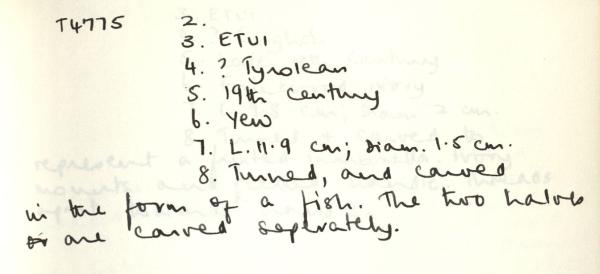 T4775 2.
3. ETUI
4. ? Tyrolean
5. 19th century
6. Yew
7. L. 11.9 cm; diam. 1.5 cm.
8. Turned, and carved
in the form of a fish. The two halves
are carved seperately.